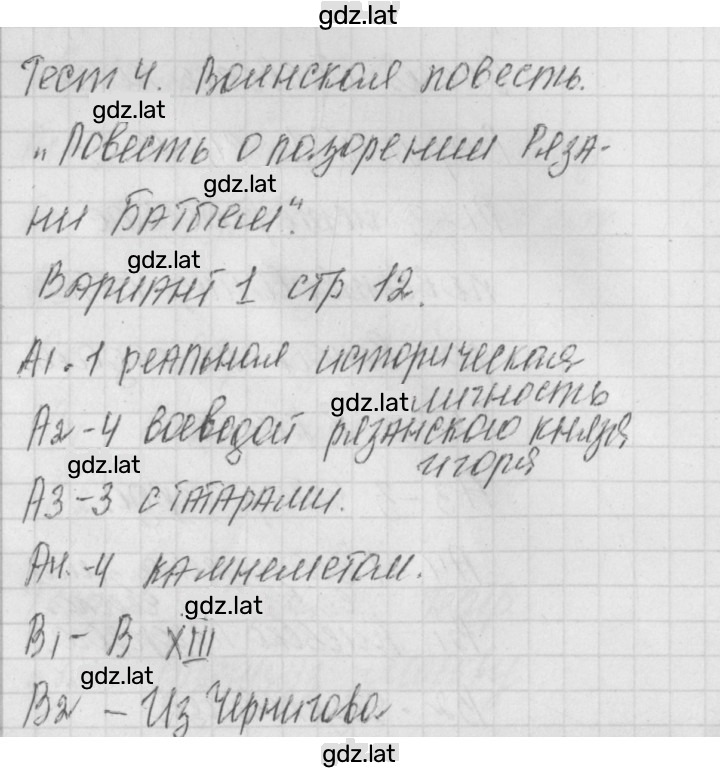 gdz.lat
Тест 4. Воинская повесть.
gdz.lat
„Повесть о разорении Ряза-
gdz.lat
ни Батыем“.
gdz.lat
Вариант 1 стр 12.
А1.1 реальная историческая
gdz.lat личность
А2-4 воеводой рязанского князя
gdz.lat игоря
А3-3 с татарами.
А4.-4 камнеметам.
gdz.lat
В1- В XIII
gdz.lat
В2 - Из Чернигова
gdz.lat